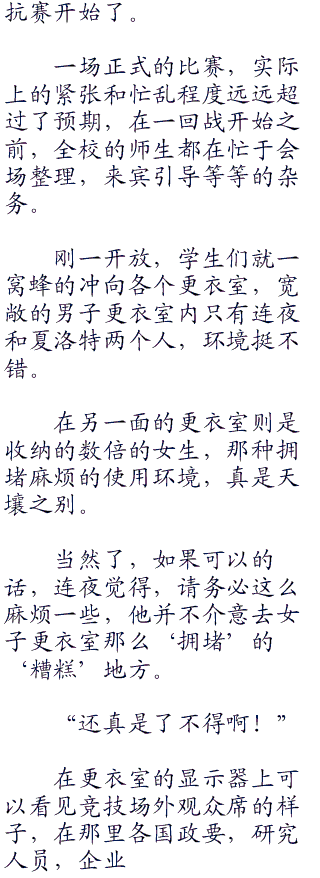 抗赛开始了。
一场正式的比赛，实际
上的紧张和忙乱程度远远超
过了预期，在一回战开始之
前，全校的师生都在忙于会
场整理，来宾引导等等的杂
务。
刚一开放，学生们就一
窝蜂的冲向各个更衣室，宽
敞的男子更衣室内只有连夜
和夏洛特两个人，环境挺不
错。
在另一面的更衣室则是
收纳的数倍的女生，那种拥
堵麻烦的使用环境，真是天
壤之别。
当然了，如果可以的
话，连夜觉得，请务必这么
麻烦一些，他并不介意去女
子更衣室那么‘拥堵’的
‘糟糕’地方。
“还真是了不得啊！”
在更衣室的显示器上可
以看见竞技场外观众席的样
子，在那里各国政要，研究
人员，企业